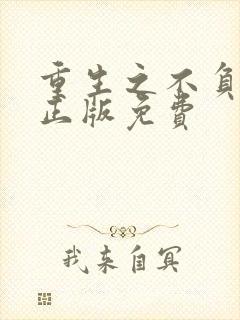 重生之不负
正版免费
我来自冥